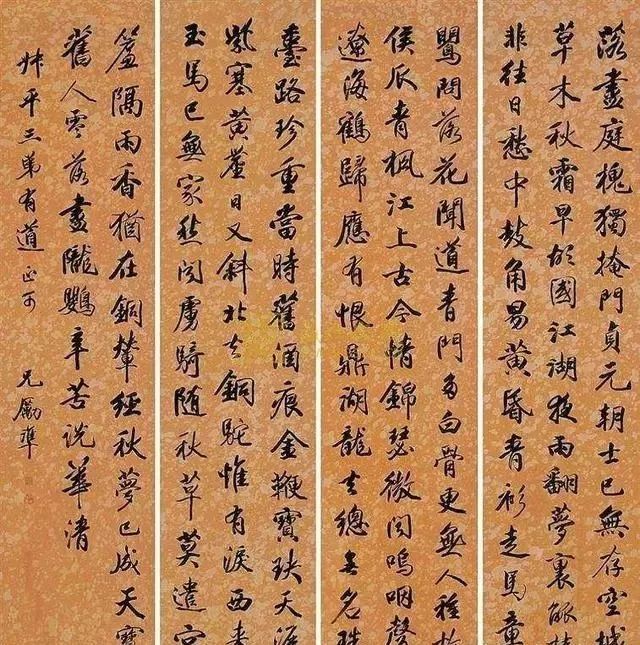 落盡庭槐獨掩門貞元朝士已無存空城
草木秋霜早故國江湖夜雨翻夢裏觚棱
非往日愁中鼓角易黃昏青衫走馬童
鸎問落花聞道青門多白骨更無人種故
侯瓜青楓江上古今情錦瑟微聞嗚咽聲
遼海鶴歸應有恨鼎湖龍去總無名珠
臺路珍重當時舊酒痕金鞭寶玦天涯
紫塞黃蘆日又斜北去銅駝惟有淚西來
玉馬已無家愁聞虜騎隨秋草莫遣宮
簾隔雨香猶在銅輦經秋夢已成天寶
舊人零落盡隴鸚辛苦說華清
叔平三弟有道正可
兄勵準